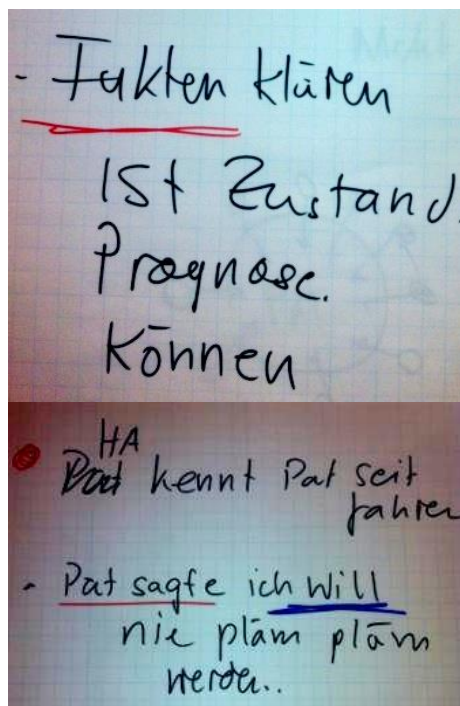 - Fakten klären
Ist Zustand.
Prognose.
Können
HA
kennt Pat seit
Jahren
- Pat sagte ich will
nie pläm pläm
werden..